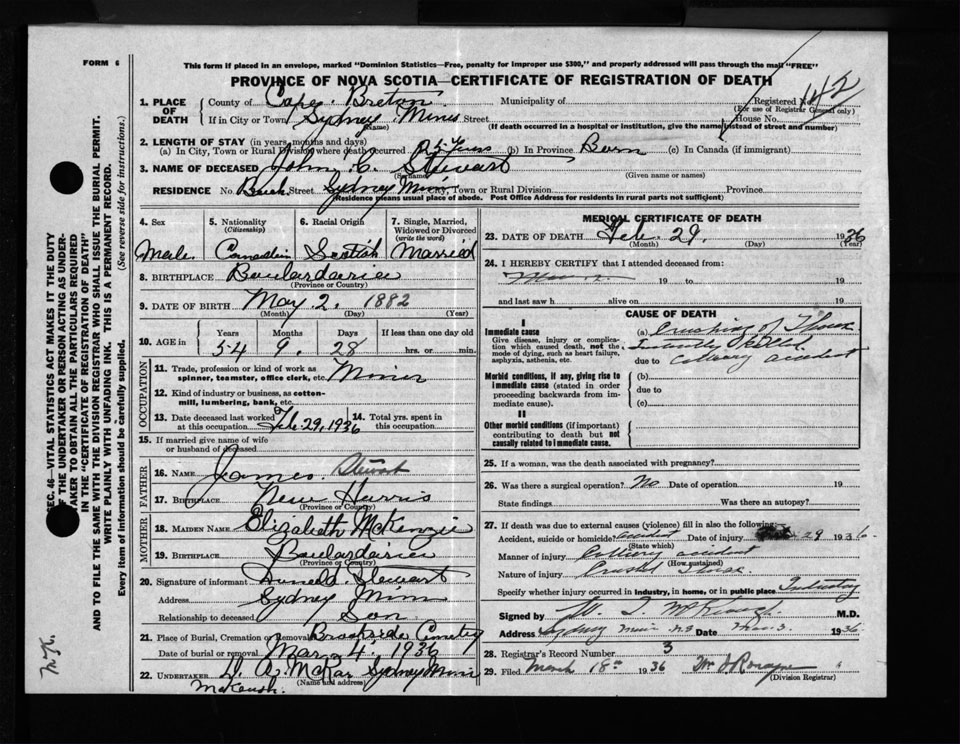 FORM 6
This form if placed in an envelope, marked "Dominion Statistics—Free, penalty for improper use $300," and properly addressed will pass through the mail "FREE"
PROVINCE OF NOVA SCOTIA—CERTIFICATE OF REGISTRATION OF DEATH
1. PLACE OF DEATH County of Cape Breton Municipality of Registered No. 142
(For use of Registrar General only)
If in City or Town Sydney Mines Street House No.
(Name) (If death occurred in a hospital or institution, give the name instead of street and number)
2. LENGTH OF STAY (in years, months and days)
(a) In City, Town or Rural Division where death occurred 25 Years (b) In Province Born (c) In Canada (if immigrant)
3. NAME OF DECEASED John C. Stewart
(Surname) (Given name or names)
RESIDENCE No. Street Sydney Mines City, Town or Rural Division Province
(Residence means usual place of abode. Post Office Address for residents in rural parts not sufficient)
4. Sex Male
5. Nationality (Citizenship) Canadian
6. Racial Origin Scotish
7. Single, Married, Widowed or Divorced (write the word) Married
8. BIRTHPLACE Boulardarie
(Province or Country)
9. DATE OF BIRTH May 2. 1882
(Month) (Day) (Year)
10. AGE in Years Months Days If less than one day old
54 9. 28 hrs. or min.
OCCUPATION
11. Trade, profession or kind of work as spinner, teamster, office clerk, etc. Miner
12. Kind of industry or business, as cotton-mill, lumbering, bank, etc.
13. Date deceased last worked at this occupation Feb. 29, 1936 14. Total yrs. spent in this occupation
15. If married give name of wife or husband of deceased
FATHER
16. NAME James Stewart
17. BIRTHPLACE New Harris
(Province or Country)
MOTHER
18. MAIDEN NAME Elizabeth McKenzie
19. BIRTHPLACE Boulardarie
(Province or Country)
20. Signature of informant Stewart
Address Sydney Mines
Relationship to deceased Son
21. Place of Burial, Cremation or Removal Cemetery
Date of burial or removal Mar. 4. 1936
22. UNDERTAKER D. A. McRae Sydney Mines
(Name and address)
MEDICAL CERTIFICATE OF DEATH
23. DATE OF DEATH Feb. 29. 1936
(Month) (Day) (Year)
24. I HEREBY CERTIFY that I attended deceased from:
19 to 19
and last saw h alive on 19
CAUSE OF DEATH
I
Immediate cause (a) Crushing of Thorax
Give disease, injury or complication which caused death, not the mode of dying, such as heart failure, asphyxia, asthenia, etc.
Instantly killed
due to Colliery accident
Morbid conditions, if any, giving rise to immediate cause (stated in order proceeding backwards from immediate cause). (b)
due to
(c)
II
Other morbid conditions (if important) contributing to death but not causally related to immediate cause.
25. If a woman, was the death associated with pregnancy?
26. Was there a surgical operation? No Date of operation 19
State findings Was there an autopsy?
27. If death was due to external causes (violence) fill in also the following:
Accident, suicide or homicide? accident Date of injury 29 1936
(State which)
Manner of injury Colliery accident
(How sustained)
Nature of injury Crushed Thorax
Specify whether injury occurred in industry, in home, or in public place Industry
Signed by M.D.
Address Sydney Mines N.S Date Mar. 3. 1936
28. Registrar's Record Number 3
29. Filed March 18th 1936
(Division Registrar)
SEC. 46—VITAL STATISTICS ACT MAKES IT THE DUTY
OF THE UNDERTAKER OR PERSON ACTING AS UNDERTAKER TO OBTAIN ALL THE PARTICULARS REQUIRED
IN THE "CERTIFICATE OF REGISTRATION OF DEATH"
AND TO FILE THE SAME WITH THE DIVISION REGISTRAR WHO SHALL ISSUE THE BURIAL PERMIT.
WRITE PLAINLY WITH UNFADING INK. THIS IS A PERMANENT RECORD.
Every item of information should be carefully supplied. (See reverse side for instructions.)